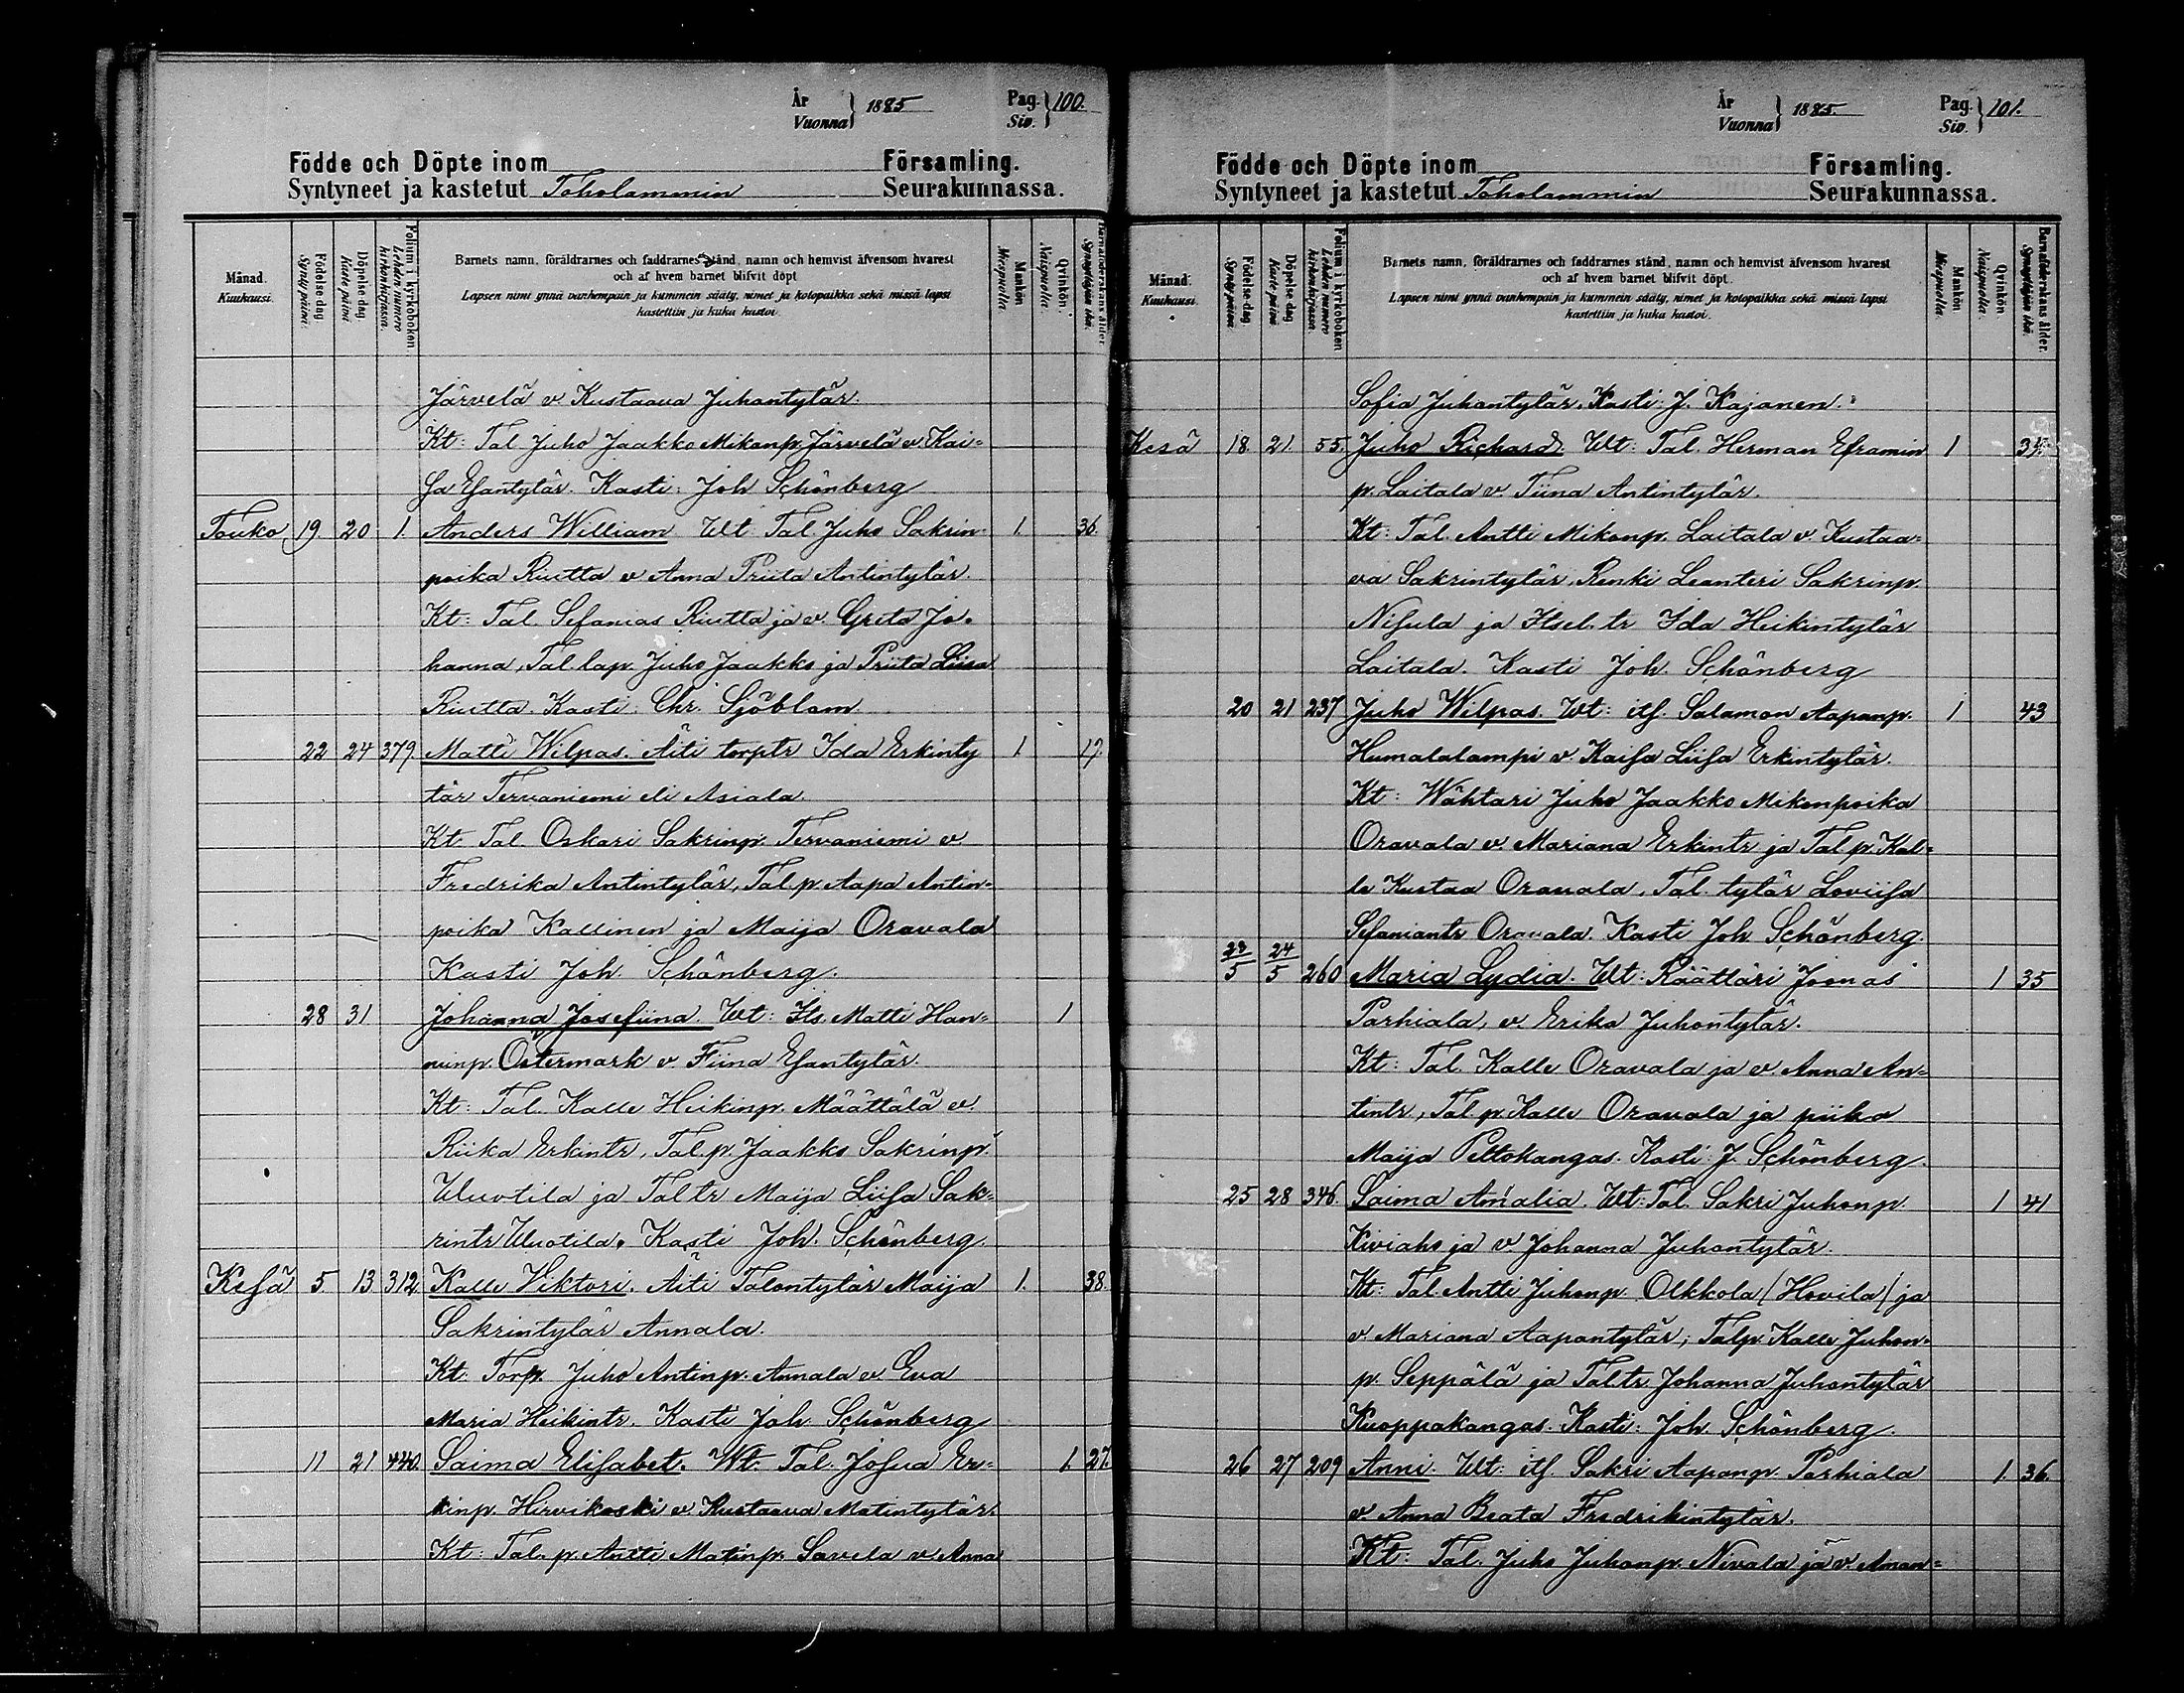 År
Vuonna } 1885
Pag.
Siv. } 100.
Födde och Döpte inom Församling.
Syntyneet ja kastetut Toholammin Seurakunnassa.
Månad.
Kuukausi.
Födelse-dag.
Synty-päivä.
Döpelse-dag.
Kaste-päivä.
Folium i kyrkoboken.
Lehden numero kirkonkirjassa.
Barnets namn, föräldrarnes och faddrarnes stånd, namn och hemvist äfvensom hvarest
och af hvem barnet blifvit döpt
Lapsen nimi ynnä vanhempain ja kummein sääty, nimet ja kotopaikka sekä missä lapsi
kastettiin ja kuka kastoi.
Mankön
Miespuolta.
Qvinkön.
Naispuolta.
Barnaföderskans ålder.
Synnyttäjän ikä.
Järvelä v Kustaava Juhontytär.
Kt: Tal Juho Jaakko Mikonp. Järvelä v. Kai-
sa Esantytär. Kasti: Joh Schönberg
Touko 19 20 1. Anders William Wt Tal. Juho Sakrin- 1. 36.
poika Riutta v Anna Priita Antintytär.
Kt: Tal. Sefanias Riutta ja v. Greta Jo-
hanna, Tal. lap. Juho Jaakko ja Priita Liisa
Riutta. Kasti: Chr. Sjöblom
22 24 379. Matti Wilpas. Äiti torptr Ida Erkinty 1. 19.
tär Tervaniemi eli Asiala.
Kt: Tal. Oskari Sakrinp. Tervaniemi v
Fredrika Antintytär, Tal. p. Aapa Antin-
poika Kallinen ja Maija Oravala
Kasti Joh. Schönberg.
28 31 Johanna Josefiina. Wt: Its. Matti Han- 1
ninp. Östermark v. Fiina Esantytär.
Kt: Tal. Kalle Heikinp. Määttälä v.
Riika Erkintr, Tal. p. Jaakko Sakrinp.
Uluotila ja Taltr Maija Liisa Sak-
rintr Uluotila. Kasti Joh. Schönberg.
Kesä 5. 13 312. Kalle Viktori. Äiti Talontytär Maija 1. 38.
Sakrintytär Annala.
Kt: Torp. Juho Antinp. Annala v. Eva
Maria Heikintr. Kasti Joh Schönberg
11 21 440. Saima Elisabet. Wt: Tal. Josua Er- 1. 27.
kinp. Hirvikoski v. Kustaava Matintytär.
Kt: Tal. p. Antti Matinp. Savela v Anna
År
Vuonna } 1885.
Pag.
Siv. } 101.
Födde och Döpte inom Församling.
Syntyneet ja kastetut Toholammin Seurakunnassa.
Månad.
Kuukausi.
Födelse-dag.
Synty-päivä.
Döpelse-dag.
Kaste-päivä.
Folium i kyrkoboken
Lehden numero kirkonkirjassa.
Barnets namn, föräldrarnes och faddrarnes stånd, namn och hemvist äfvensom hvarest
och af hvem barnet blifvit döpt.
Lapsen nimi ynnä vanhempain ja kummein sääty, nimet ja kotopaikka sekä missä lapsi
kastettiin ja kuka kastoi.
Mankön
Miespuolta.
Qvinkön
Naispuolta.
Barnaföderskans ålder.
Synnyttäjän ikä.
Sofia Juhontytär. Kasti: J. Kajanen.
Kesä 18. 21. 55. Juho Richard. Wt: Tal. Herman Eframin 1
p. Laitala v. Tiina Antintytär.
Kt: Tal. Antti Mikonp. Laitala v. Kustaa-
va Sakrintytär, Renki Leanteri Sakrinp.
Nisula ja Itsel. tr Ida Heikintytär
Laitala. Kasti Joh. Schönberg
20 21 237 Juho Wilpas. Wt: its. Salamon Aapanp. 1 43
Humalalampi v. Kaisa Liisa Erkintytär.
Kt: Wähtari Juho Jaakko Mikonpoika
Oravala v. Mariana Erkintr ja Tal. p. Kal-
le Kustaa Oravala, Tal. tytär Loviisa
Sefaniantr Oravala. Kasti Joh Schönberg.
23/5 24/5 260 Maria Lydia. Wt: Räättäri Joonas 1 35
Parhiala, v. Erika Juhontytär.
Kt: Tal. Kalle Oravala ja v. Anna An-
tintr, Tal. p. Kalle Oravala ja piika
Maija Peltokangas. Kasti: J. Schönberg.
25 28 346. Saima Amalia. Wt: Tal. Sakri Juhonp. 1 41
Kiviaho ja v Johanna Juhontytär
Kt: Tal. Antti Juhonp. Olkkola (Hovila) ja
v. Mariana Aapontytär, Talp. Kalle Juhon-
p. Seppälä ja Tal.tr. Johanna Juhontytär
Kuoppakangas. Kasti: Joh. Schönberg.
26 27 209 Anni. Wt: its. Sakri Aapanp. Parhiala 1. 36.
v Anna Beata Fredrikintytär.
Kt: Tal. Juho Juhonp. Nivala ja v. Aman-